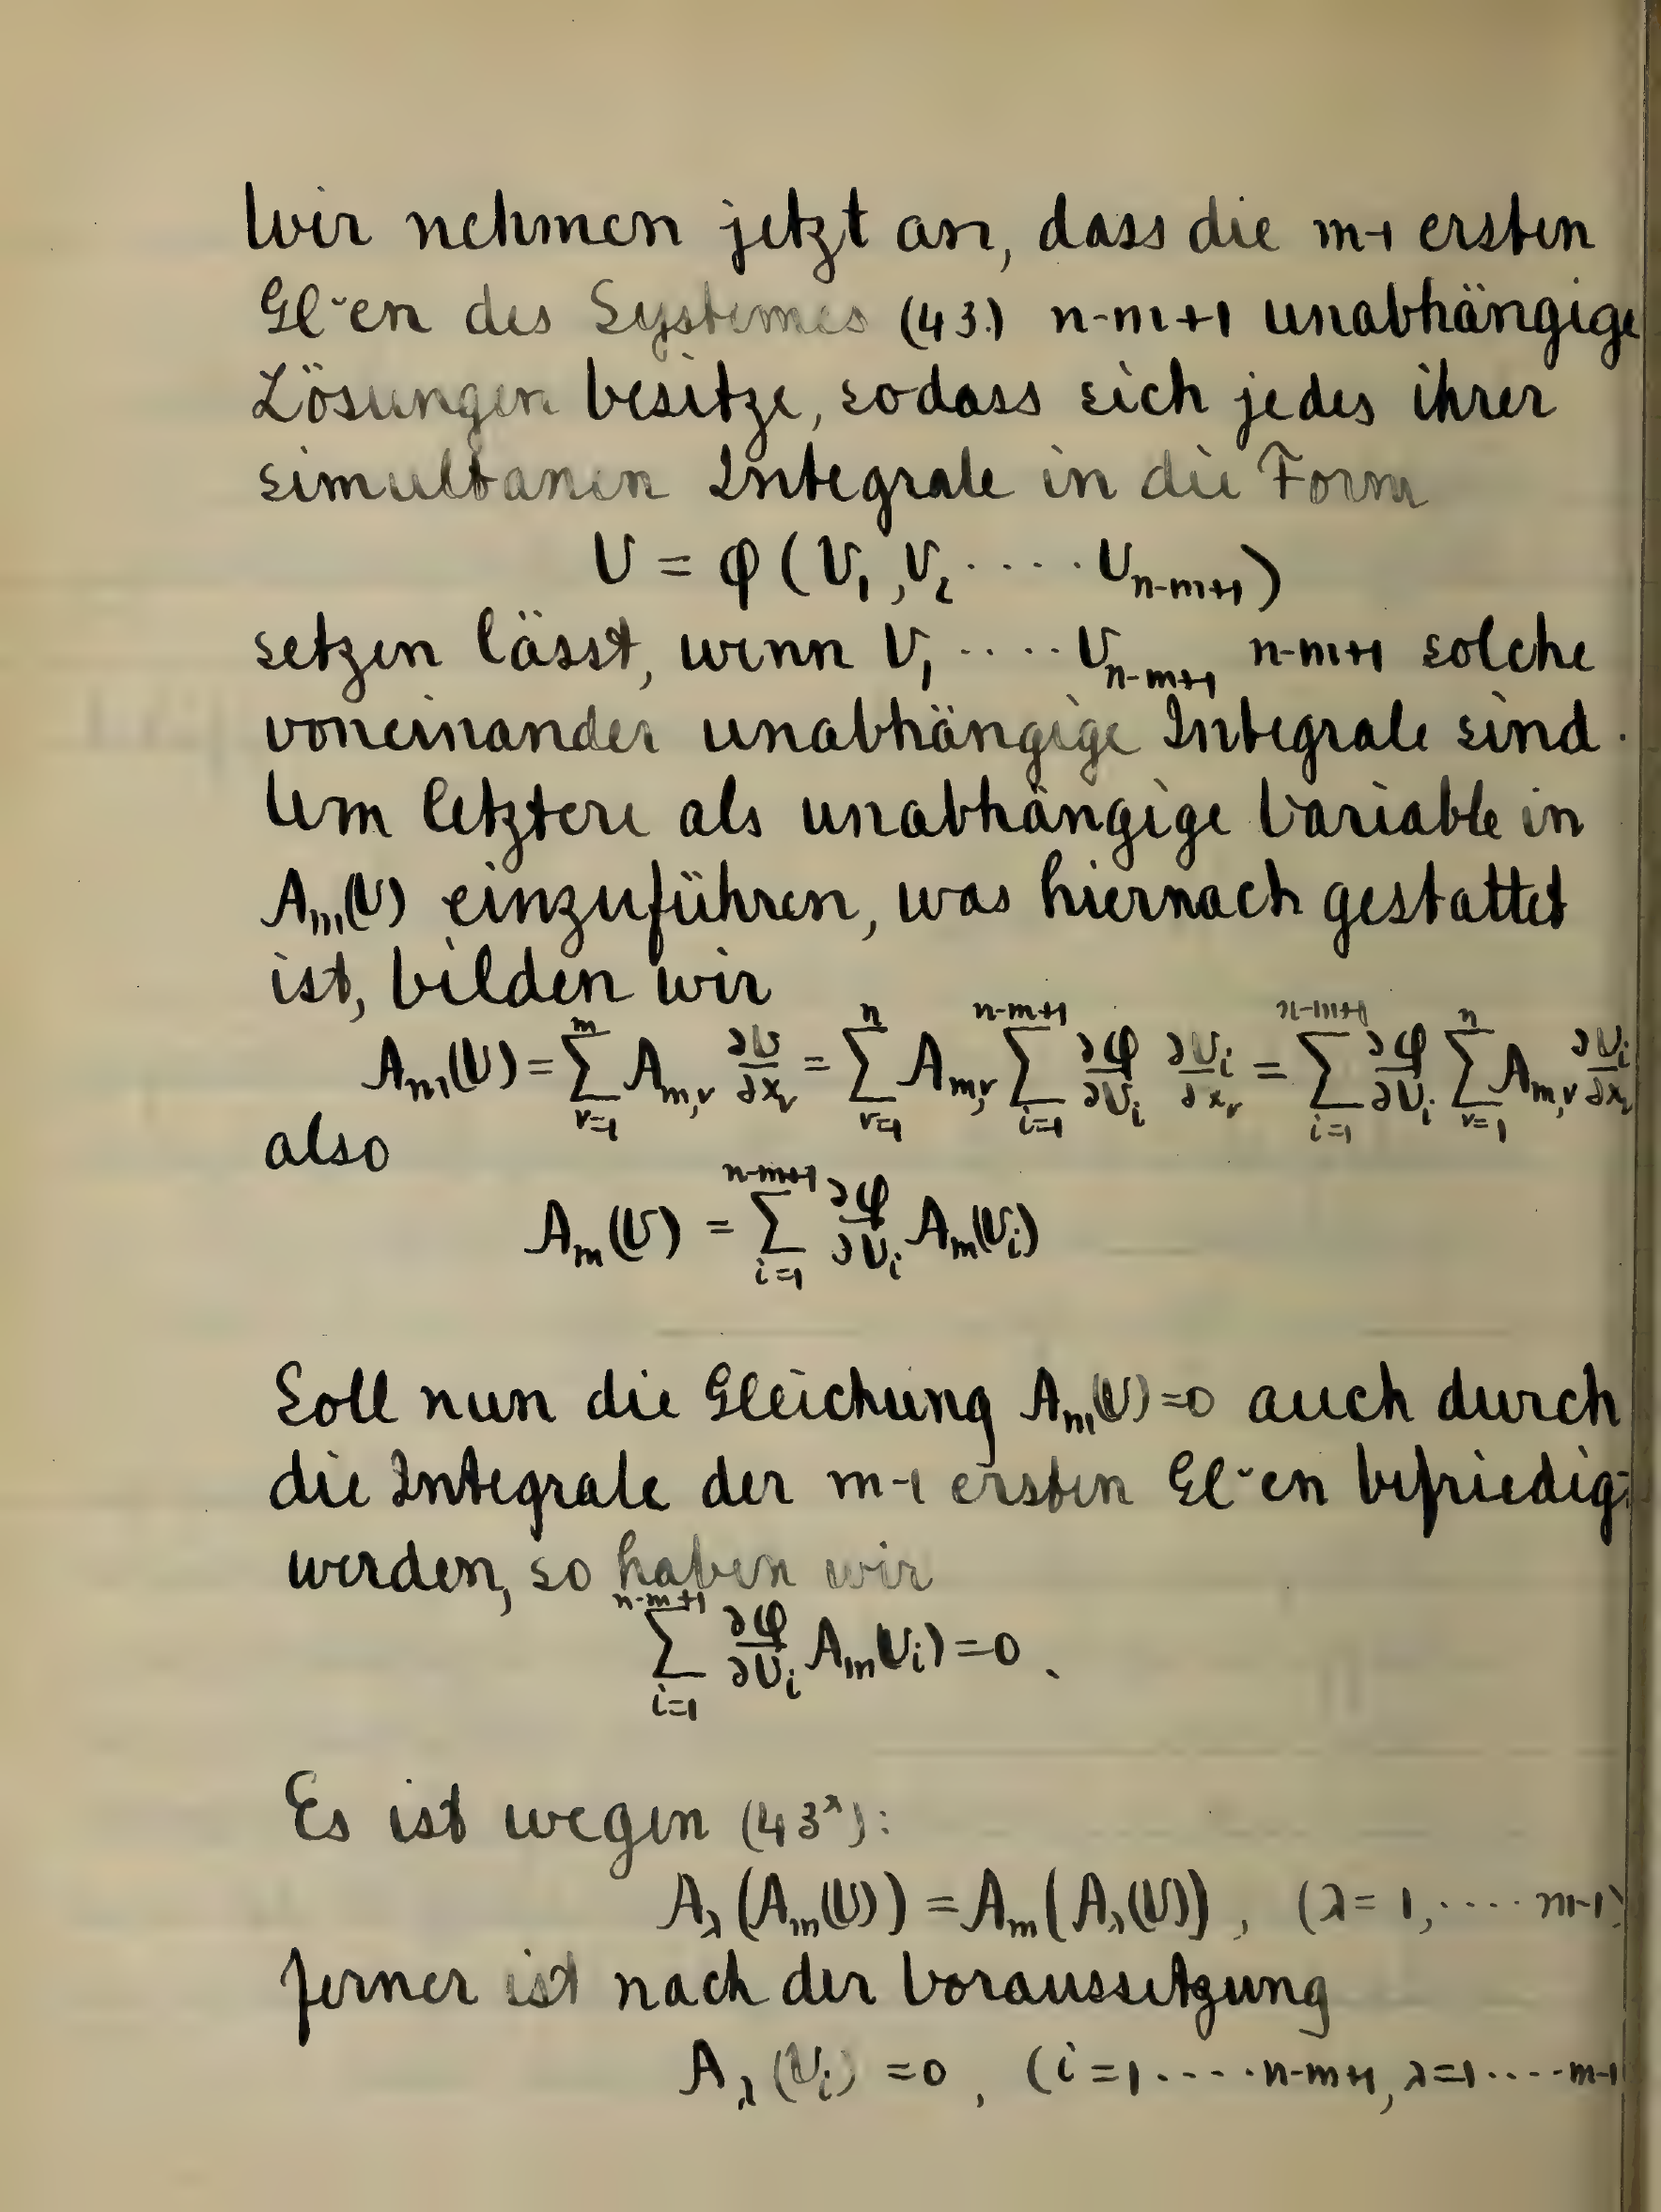 Wir nehmen jetzt an, dass die m-1 ersten
Gl-en des Systemes (43.) n-m+1 unabhängige
Lösungen besitze, sodass sich jedes ihrer
simultanen Integrale in die Form
U = φ(U₁, U₂ ····· U_{n-m+1})
setzen lässt, wenn U₁ ···· U_{n-m+1} n-m+1 solche
voneinander unabhängige Integrale sind.
Um letztere als unabhängige Variable in
A_m(U) einzuführen, was hiernach gestattet
ist, bilden wir
A_m(U) = \sum_{ν=1}^{m} A_{m,ν} \frac{∂U}{∂x_ν} = \sum_{ν=1}^{n} A_{m,ν} \sum_{i=1}^{n-m+1} \frac{∂φ}{∂U_i} \frac{∂U_i}{∂x_ν} = \sum_{i=1}^{n-m+1} \frac{∂φ}{∂U_i} \sum_{ν=1}^{n} A_{m,ν} \frac{∂U_i}{∂x_ν}
also
A_m(U) = \sum_{i=1}^{n-m+1} \frac{∂φ}{∂U_i} A_m(U_i)
Soll nun die Gleichung A_m(U)=0 auch durch
die Integrale der m-1 ersten Gl-en befriedigt
werden, so haben wir
\sum_{i=1}^{n-m+1} \frac{∂φ}{∂U_i} A_m(U_i) = 0.
Es ist wegen (43ˣ):
A_λ(A_m(U)) = A_m(A_λ(U)), (λ = 1, ···· m-1)
ferner ist nach der Voraussetzung
A_λ(U_i) = 0, (i = 1 ···· n-m+1, λ=1 ···· m-1